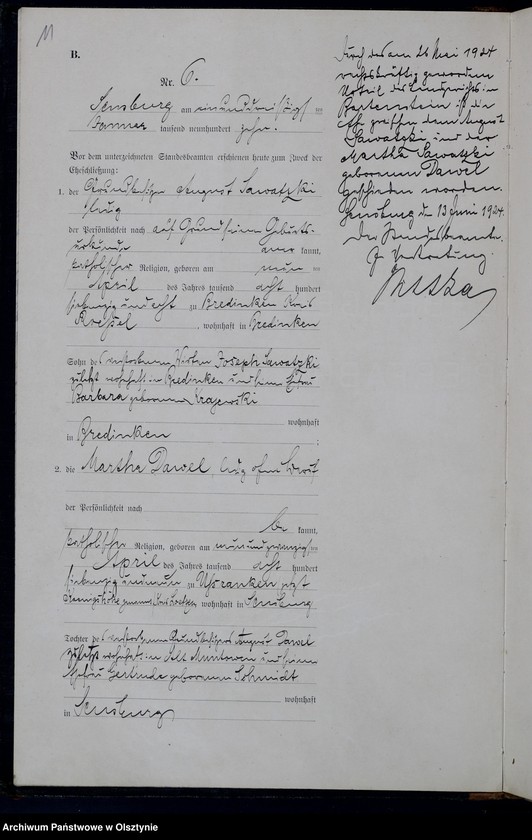 11
B.
Nr. 6.
Sensburg am einunddreißigsten
Januar tausend neunhundert zehn.
Vor dem unterzeichneten Standesbeamten erschienen heute zum Zweck der
Eheschließung:
1. der Grundbesitzer August Sawatzki
der Persönlichkeit nach auf Grund seiner Geburts-
urkunde anerkannt,
katholischer Religion, geboren am neun ten
April des Jahres tausend acht hundert
siebenzig und acht zu Bredinken Kreis
Roessel, wohnhaft in Bredinken
Sohn des verstorbenen Wirten Joseph Sawatzki
zuletzt wohnhaft in Bredinken und seiner Ehefrau
Barbara geborenen Krajewski
wohnhaft
in Bredinken;
2. die Martha Dawel, ledig ohne Beruf
der Persönlichkeit nach
be kannt,
katholischer Religion, geboren am neunundzwanzigsten
April des Jahres tausend acht hundert
siebenzig und neun zu jetzt
Koenigshöhe Kreis Loetzen wohnhaft in Sensburg
Tochter des verstorbenen Grundbesitzers August Dawel
zuletzt wohnhaft in Alt Muntowen und seiner
Ehefrau Gertrude geborenen Schmidt
wohnhaft
in Sensburg
Durch das am 26 Mai 1924
rechtskräftig gewordene
Urteil des Landgerichts in
Bartenstein ist die
Ehe zwischen dem August
Sawatzki und der
Martha Sawatzki
geborenen Dawel
geschieden worden.
Sensburg den 13 Juni 1924.
Der Standesbeamte.
In Vertretung.
Archiwum Państwowe w Olsztynie